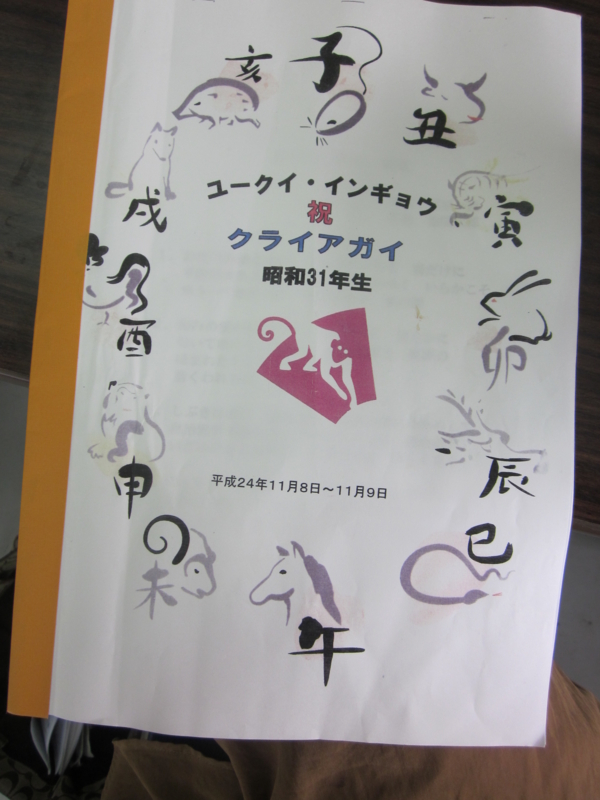 亥
子
丑
寅
卯
辰
巳
午
未
申
酉
戌
ユークイ・インギョウ
祝
クライアガイ
昭和31年生
平成24年11月8日～11月9日